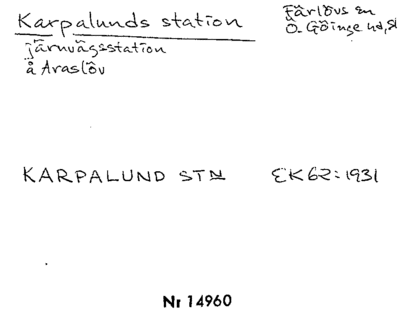 Karpalunds station
Färlövs sn
Ö. Göinge hd, Sk
järnvägsstation
å Araslöv
KARPALUND STN EK62:1931
Nr 14960